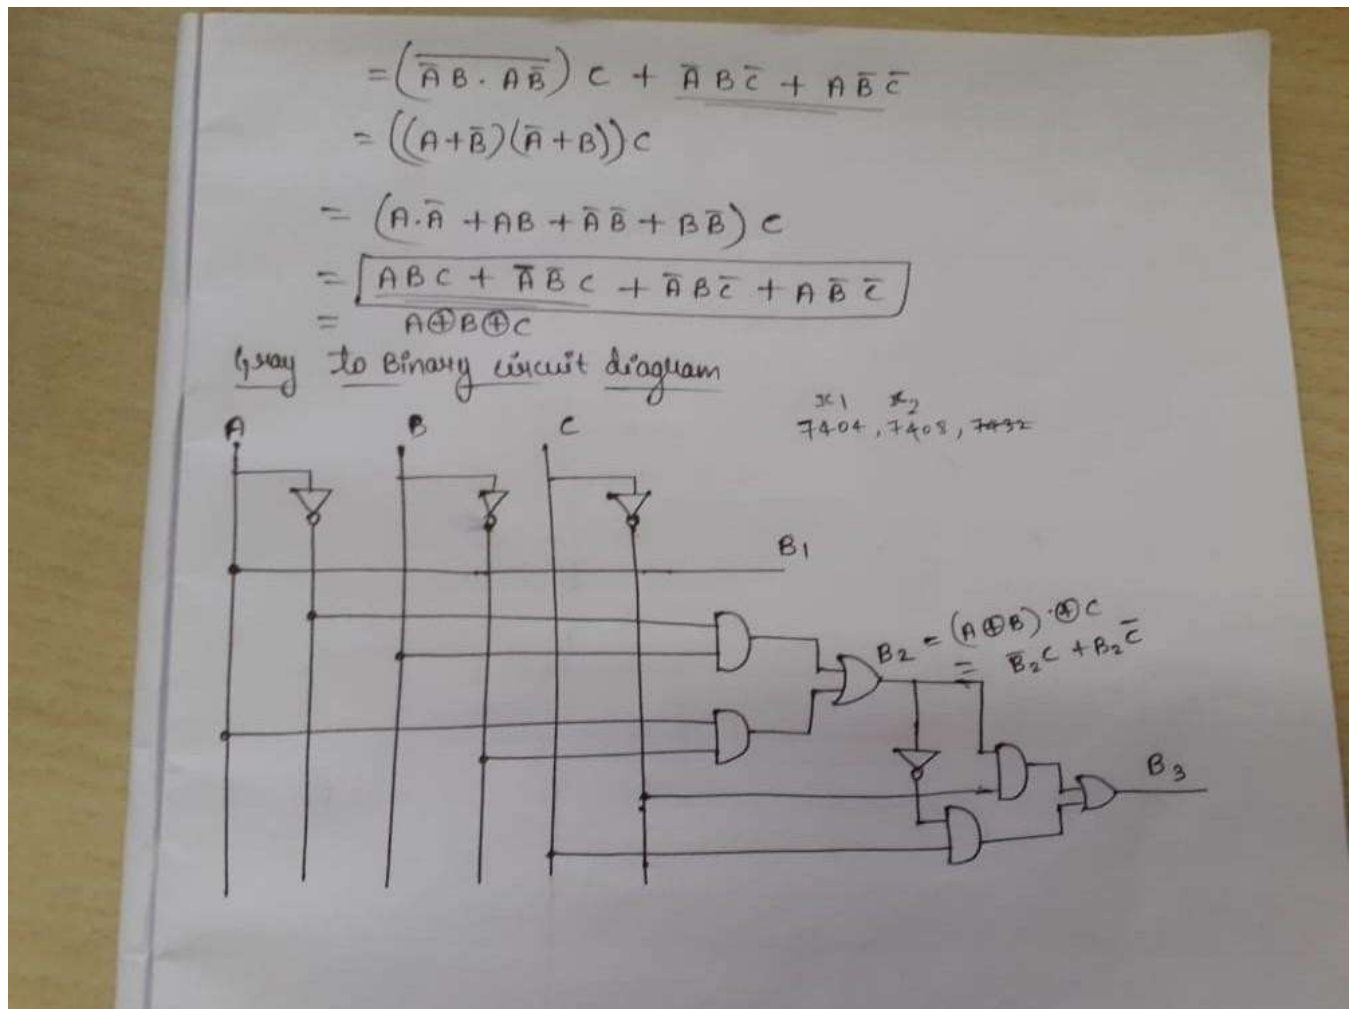 = (\overline{A̅B · AB̅}) C + A̅BC̅ + AB̅C̅
= ((A+B̅)(A̅+B))C
= (A·A̅ + AB + A̅B̅ + BB̅) C
= ABC + A̅B̅C + A̅BC̅ + AB̅C̅
= A⊕B⊕C
Gray to Binary circuit diagram
x1 x2
7404, 7408, 7432
A B C
B1
B2 = (A⊕B)·⊕C
= B̅2C + B2C̅
B3